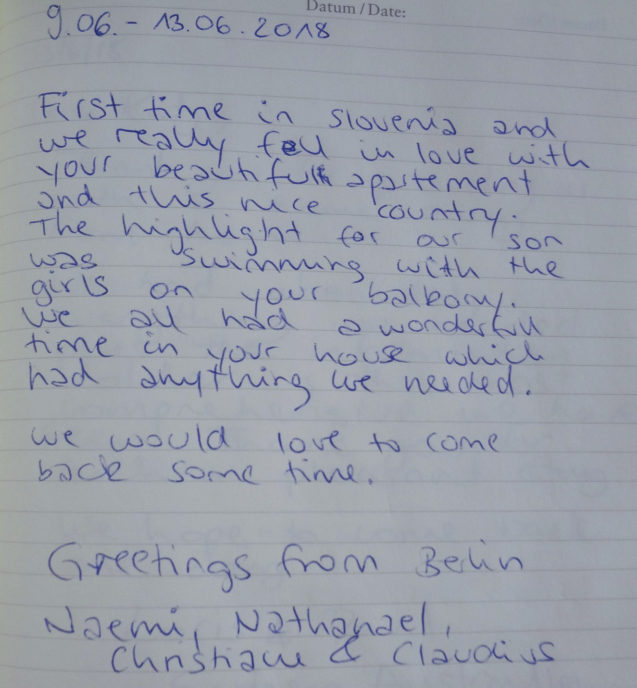 Datum / Date:
9.06. - 13.06.2018
First time in Slovenia and
we really fell in love with
your beautifull apartement
and this nice country.
The highlight for our son
was swimming with the
girls on your balkony.
We all had a wonderfull
time in your house which
had anything we needed.
We would love to come
back some time.
Greetings from Berlin
Naemi, Nathanael,
Christiane & Claudius